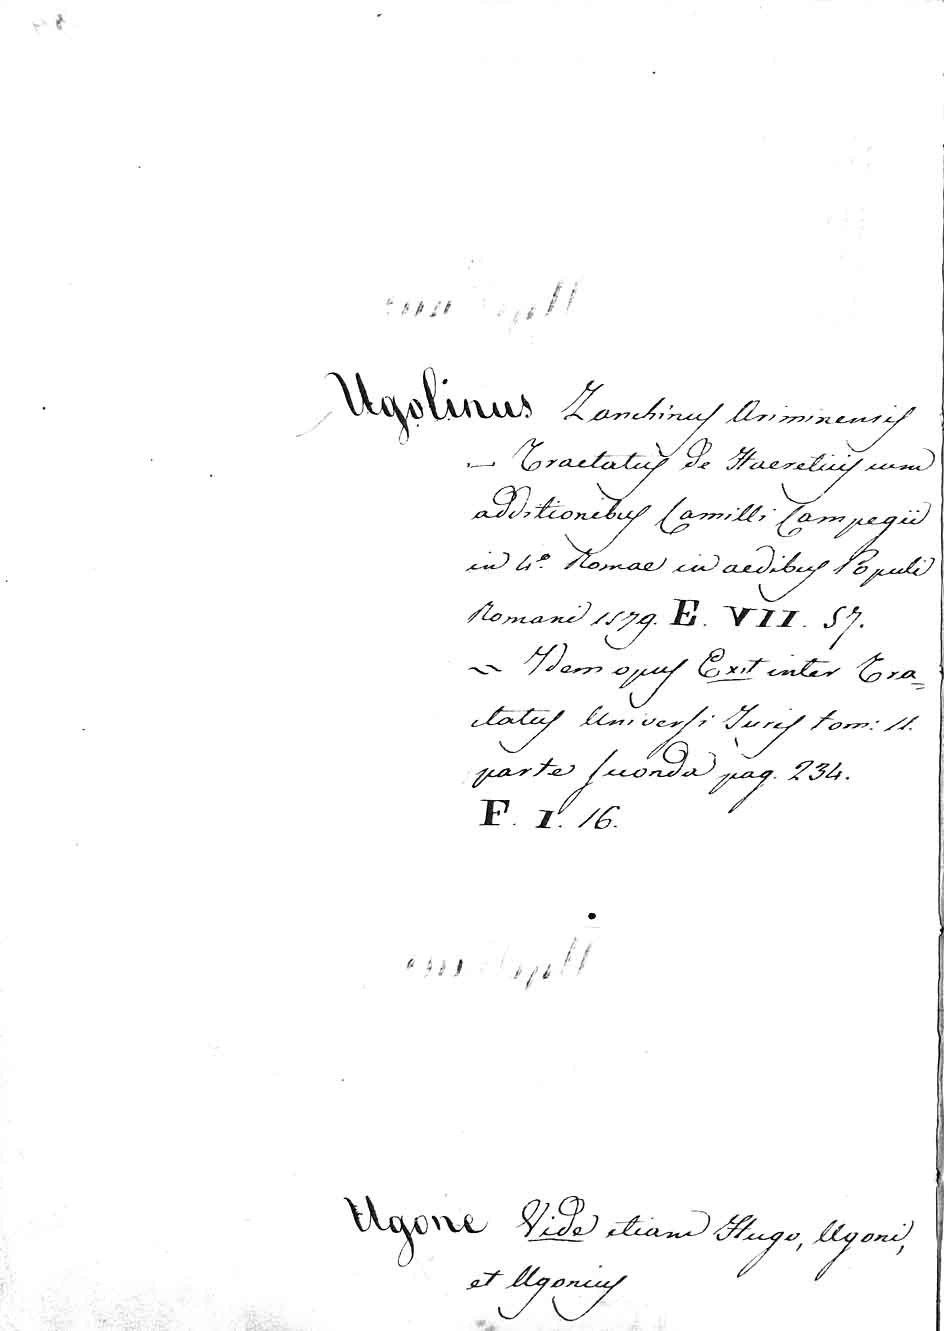 Ugolinus Zanchinus Ariminensis
— Tractatus de Haereticis cum
additionibus Camilli Campegii
in 4.º Romae in aedibus Populi
Romani 1579. E. VII. 57.
~ Idem opus Exit inter Tra=
ctatus Universi Juris tom: 11.
parte secunda pag. 234.
F. I. 16.
Ugone Vide etiam Hugo, Ugoni,
et Ugonius